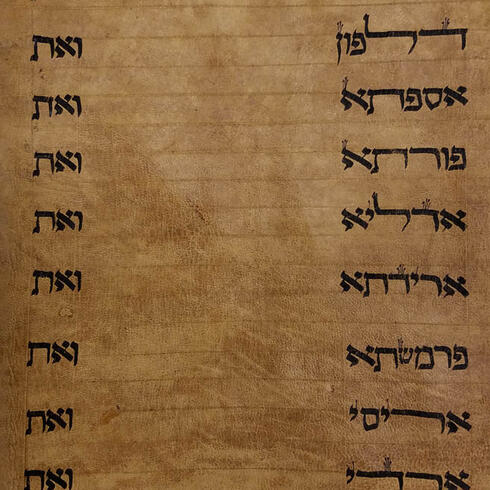 דלפון ואת
אספתא ואת
פורתא ואת
אדליא ואת
ארידתא ואת
פרמשתא ואת
אריסי ואת
ארדי ואת